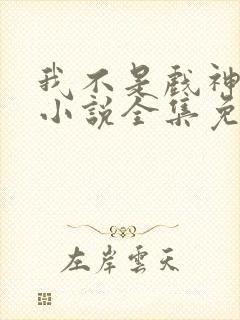 我不是戏神
小说全集免
左岸雲天